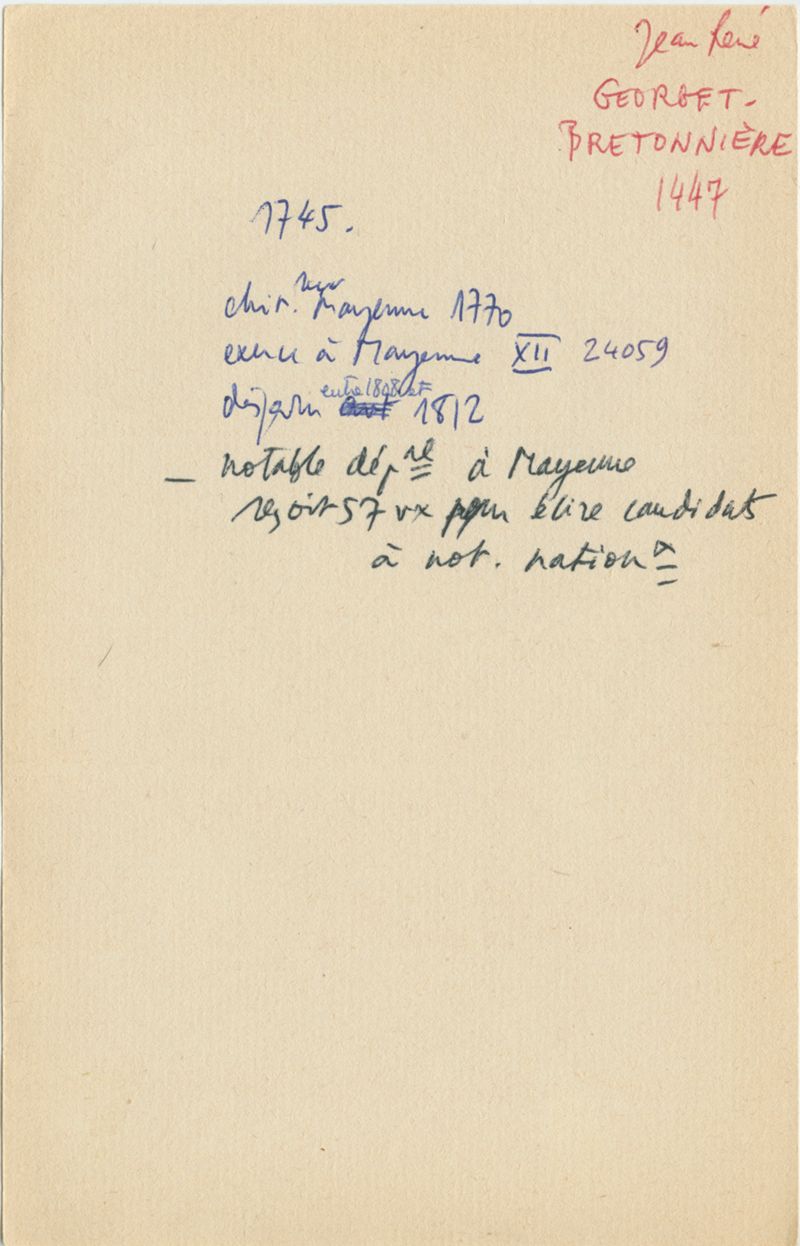 Jean René
GEORGET-
BRETONNIÈRE
1447
1745.
chir. Mayenne 1770
exerce à Mayenne XII 24059
disparu entre 1808 et 1812
— notable dépal à Mayenne
reçoit 57 vx pour élire candidats
à not. nationx